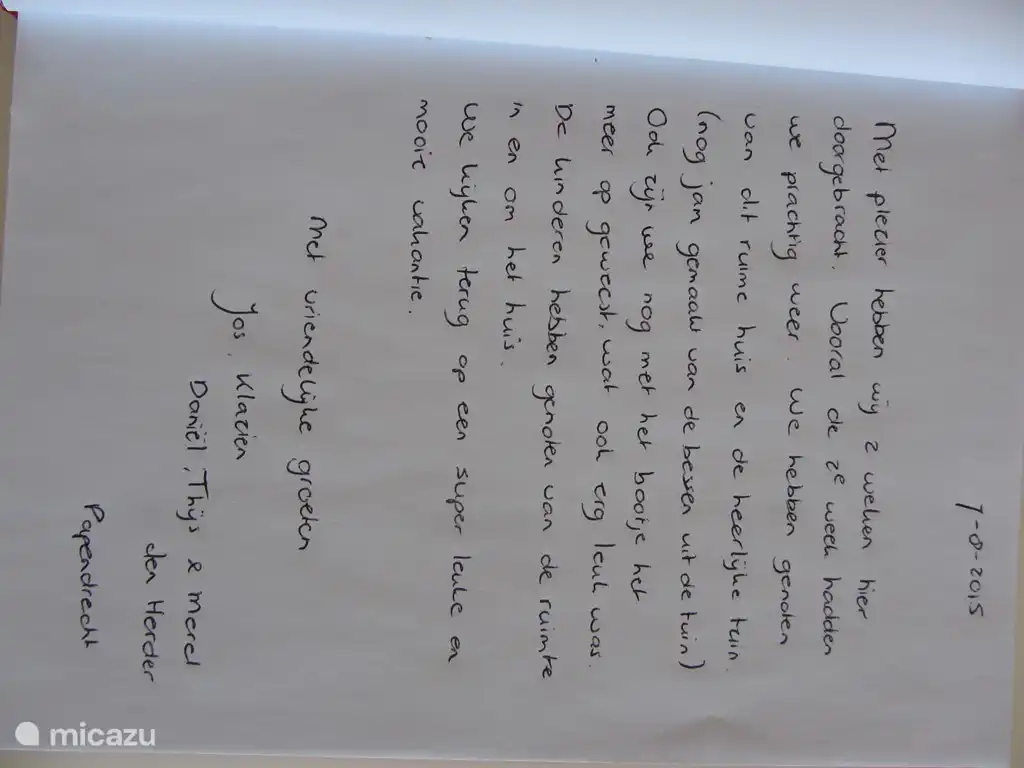 7-8-2015
Met plezier hebben wij 2 weken hier
doorgebracht. Vooral de 2e week hadden
we prachtig weer. We hebben genoten
van dit ruime huis en de heerlijke tuin.
(nog jam gemaakt van de bessen uit de tuin)
Ook zijn we nog met het bootje het
meer op geweest, wat ook erg leuk was.
De kinderen hebben genoten van de ruimte
in en om het huis.
We kijken terug op een super leuke en
mooie vakantie.
Met vriendelijke groeten
Jos, Klazien
Daniël, Thijs & Merel
den Herder
Papendrecht
micazu